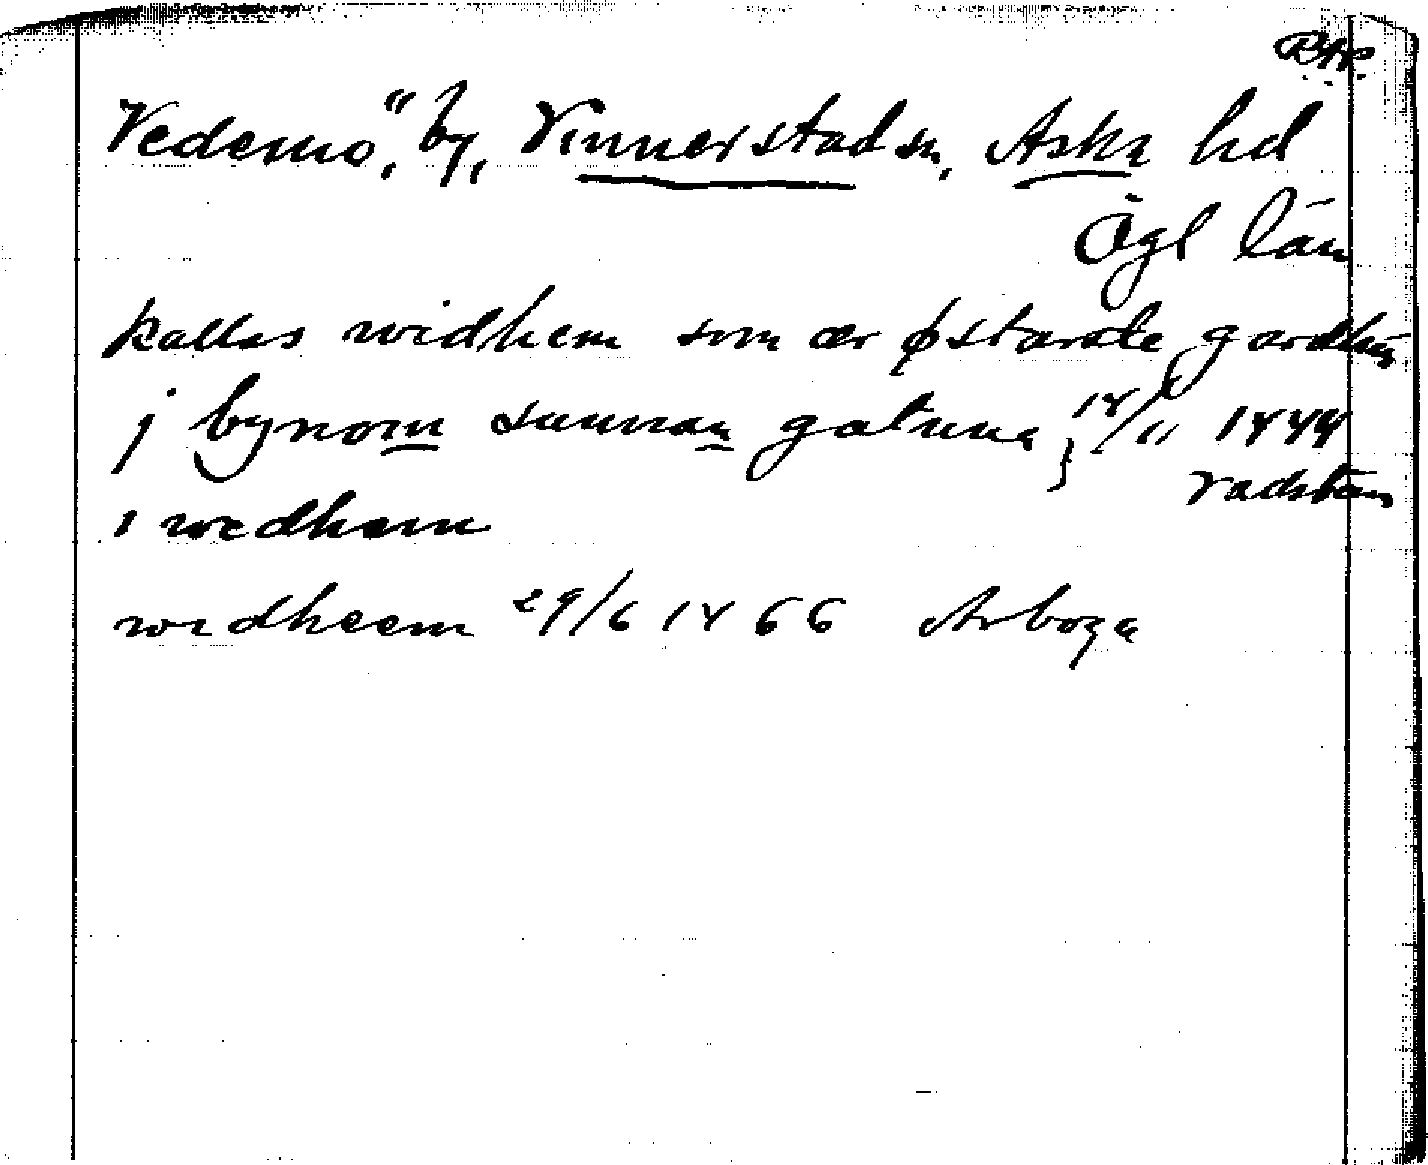 RAP.
Vedemö, by, Vinnerstad sn, Aska hd
Ögl län
kallas widhem som ær østarste gardhin
j bynom sunnan gatuna; 14/11 1444
Vadstena
i wedhem
widheem 29/6 1466 Arboga